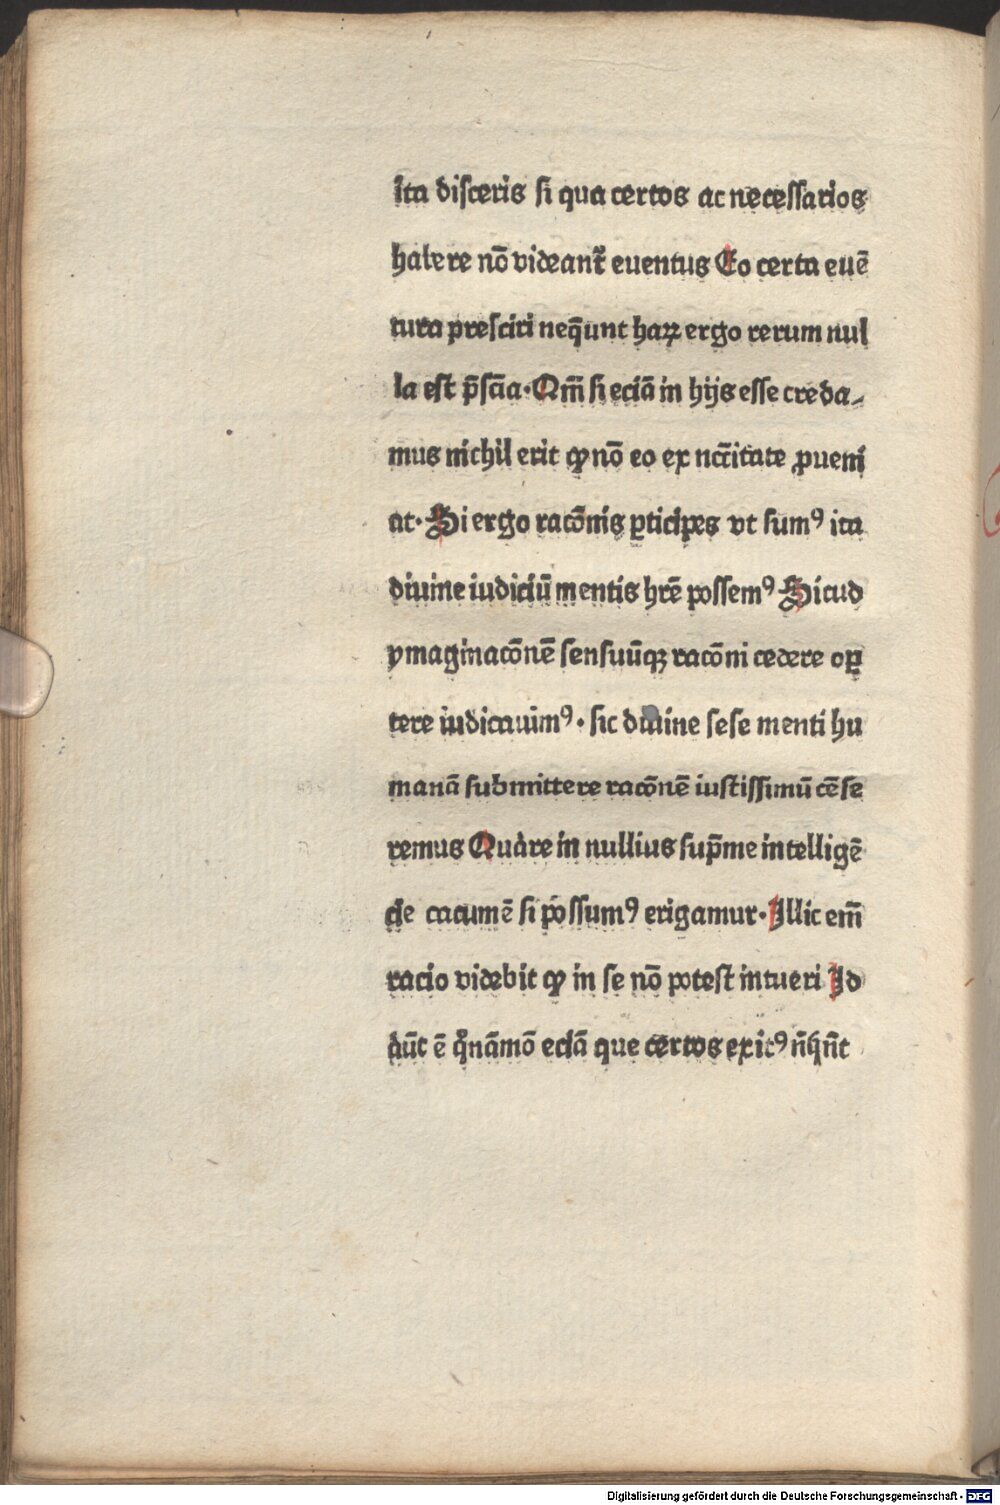 ita disceris si qua certos ac necessarios
habere nō videant᷑ euentus Eo certa euē
tura presciri neq̄unt haꝝ ergo rerum nul
la est p̄scīa · Qm̄ si eciā in hijs esse creda⸗
mus nichil erit qꝫ nō eo ex nc̄c̄itate ꝓueni
at · Si ergo racōnis ꝑticipes vt sumꝰ ita
diuine iudiciū mentis hr̄e possemꝰ Sicud
ymaginacōnē sensuūqꝫ racōni cedere oꝑ
tere iudicauimꝰ · sic diuine sese menti hu
manā submittere racōnē iustissimū cēse
remus Quare in nullius sup̄me intelligē
cie cacumē si possumꝰ erigamur · Illic em̄
racio videbit qꝫ in se nō potest intueri Id
aūt ē qͦnāmō eciā que certos exitꝰ n̄ hn̄t
Digitalisierung gefördert durch die Deutsche Forschungsgemeinschaft - DFG